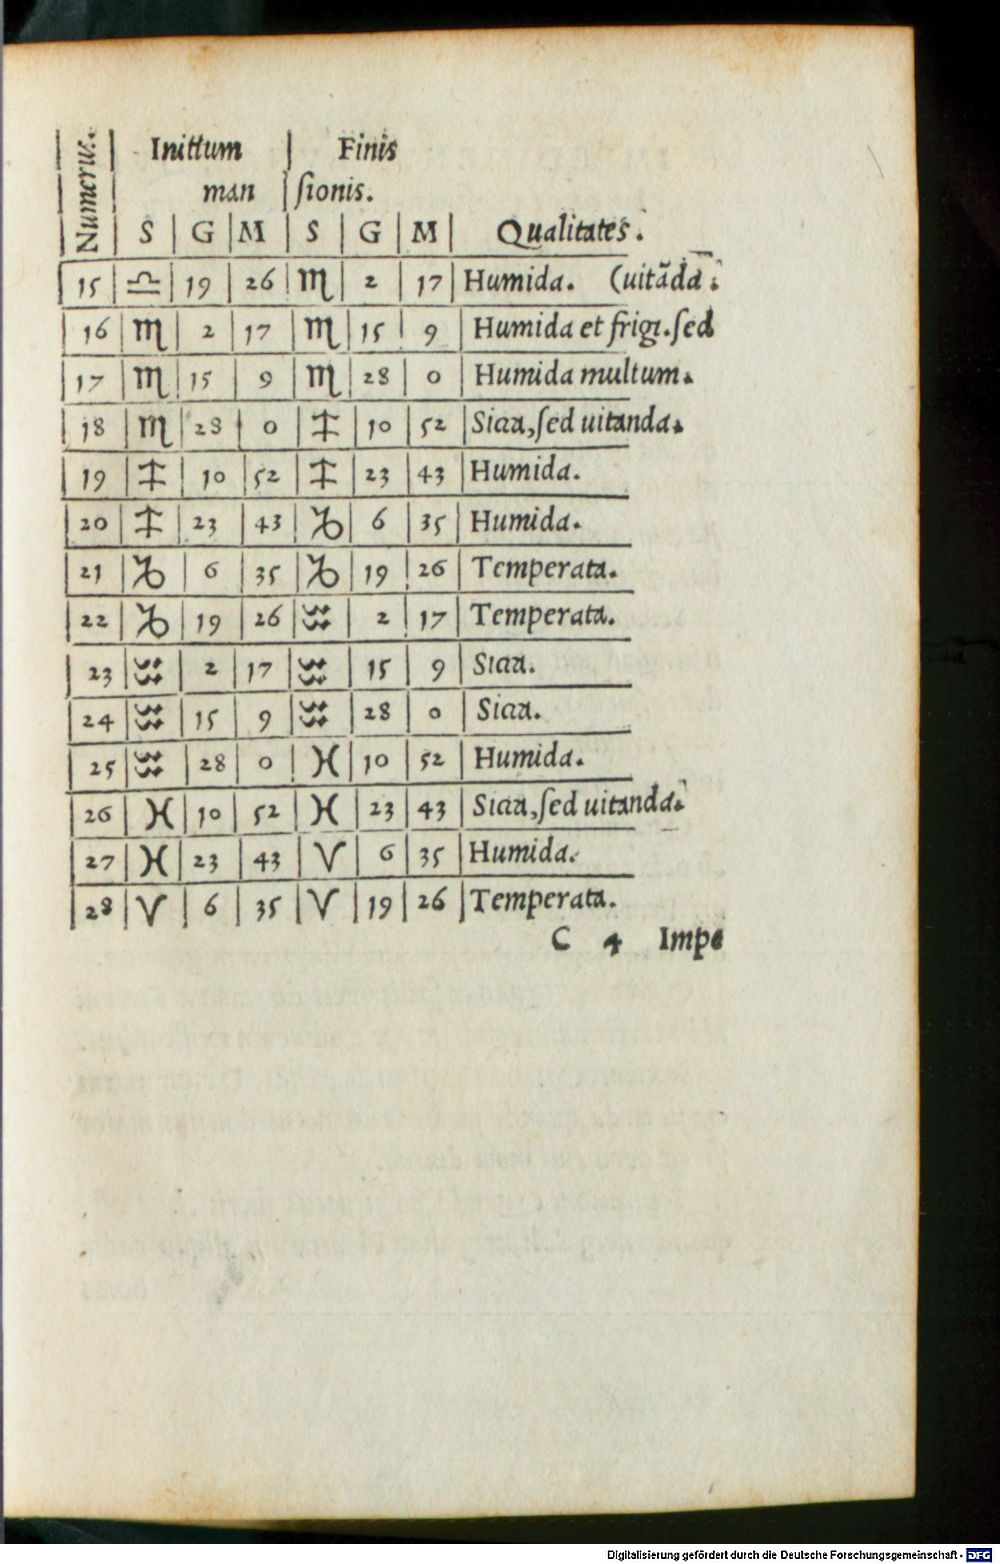 Numerus. | Initium | Finis
man | sionis.
S | G | M | S | G | M | Qualitates.
15 | ♎ | 19 | 26 | ♏ | 2 | 17 | Humida. (uitãda.
16 | ♏ | 2 | 17 | ♏ | 15 | 9 | Humida et frigi. sed
17 | ♏ | 15 | 9 | ♏ | 28 | 0 | Humida multum.
18 | ♏ | 28 | 0 | ♐ | 10 | 52 | Sicca, sed uitanda.
19 | ♐ | 10 | 52 | ♐ | 23 | 43 | Humida.
20 | ♐ | 23 | 43 | ♑ | 6 | 35 | Humida.
21 | ♑ | 6 | 35 | ♑ | 19 | 26 | Temperata.
22 | ♑ | 19 | 26 | ♒ | 2 | 17 | Temperata.
23 | ♒ | 2 | 17 | ♒ | 15 | 9 | Sicca.
24 | ♒ | 15 | 9 | ♒ | 28 | 0 | Sicca.
25 | ♒ | 28 | 0 | ♓ | 10 | 52 | Humida.
26 | ♓ | 10 | 52 | ♓ | 23 | 43 | Sicca, sed uitanda.
27 | ♓ | 23 | 43 | ♈ | 6 | 35 | Humida.
28 | ♈ | 6 | 35 | ♈ | 19 | 26 | Temperata.
C 4 Impe
Digitalisierung gefördert durch die Deutsche Forschungsgemeinschaft - DFG